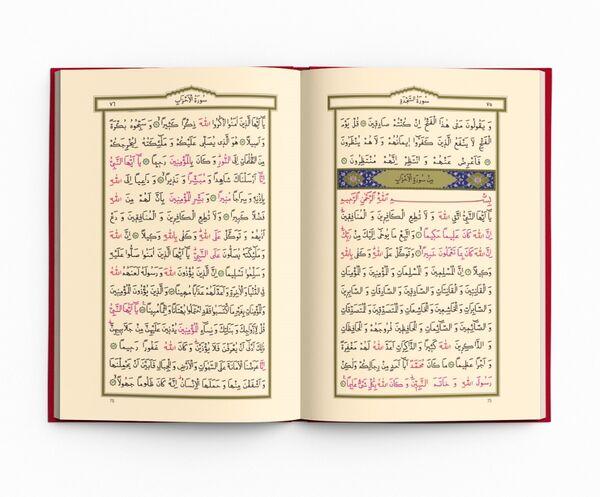 سُورَةُ السَّجْدَةِ ٧٥
وَ يَقُولُونَ مَتٰى هٰذَا الْفَتْحُ اِنْ كُنْتُمْ صَادِقِينَ ۞ قُلْ يَوْمَ
الْفَتْحِ لَا يَنْفَعُ الَّذِينَ كَفَرُوا اِيمَانُهُمْ وَ لَا هُمْ يُنْظَرُونَ
۞ فَاَعْرِضْ عَنْهُمْ وَ انْتَظِرْ اِنَّهُمْ مُنْتَظِرُونَ ۞
مِنْ سُورَةِ الْاَحْزَابِ
بِسْمِ اللّٰهِ الرَّحْمٰنِ الرَّحِيمِ
يَا اَيُّهَا النَّبِيُّ اتَّقِ اللّٰهَ وَ لَا تُطِعِ الْكَافِرِينَ وَ الْمُنَافِقِينَ
اِنَّ اللّٰهَ كَانَ عَلِيمًا حَكِيمًا ۞ وَ اتَّبِعْ مَا يُوحٰى اِلَيْكَ مِنْ رَبِّكَ
اِنَّ اللّٰهَ كَانَ بِمَا تَعْمَلُونَ خَبِيرًا ۞ وَ تَوَكَّلْ عَلَى اللّٰهِ وَ كَفٰى بِاللّٰهِ
وَكِيلًا ۞ اِنَّ الْمُسْلِمِينَ وَ الْمُسْلِمَاتِ وَ الْمُؤْمِنِينَ وَ الْمُؤْمِنَاتِ
وَ الْقَانِتِينَ وَ الْقَانِتَاتِ وَ الصَّادِقِينَ وَ الصَّادِقَاتِ وَ الصَّابِرِينَ
وَ الصَّابِرَاتِ وَ الْخَاشِعِينَ وَ الْخَاشِعَاتِ وَ الْمُتَصَدِّقِينَ وَ الْمُتَصَدِّقَاتِ
وَ الصَّائِمِينَ وَ الصَّائِمَاتِ وَ الْحَافِظِينَ فُرُوجَهُمْ وَ الْحَافِظَاتِ
وَ الذَّاكِرِينَ اللّٰهَ كَثِيرًا وَ الذَّاكِرَاتِ اَعَدَّ اللّٰهُ لَهُمْ مَغْفِرَةً
وَ اَجْرًا عَظِيمًا ۞ مَا كَانَ مُحَمَّدٌ اَبَا اَحَدٍ مِنْ رِجَالِكُمْ وَلٰكِنْ
رَسُولَ اللّٰهِ وَ خَاتَمَ النَّبِيِّينَ وَ كَانَ اللّٰهُ بِكُلِّ شَيْءٍ عَلِيمًا ۞
75
سُورَةُ الْاَحْزَابِ ٧٦
يَا اَيُّهَا الَّذِينَ اٰمَنُوا اذْكُرُوا اللّٰهَ ذِكْرًا كَثِيرًا ۞ وَ سَبِّحُوهُ بُكْرَةً
وَ اَصِيلًا ۞ هُوَ الَّذِي يُصَلِّي عَلَيْكُمْ وَ مَلٰئِكَتُهُ لِيُخْرِجَكُمْ
مِنَ الظُّلُمَاتِ اِلَى النُّورِ وَ كَانَ بِالْمُؤْمِنِينَ رَحِيمًا ۞ يَا اَيُّهَا النَّبِيُّ
اِنَّا اَرْسَلْنَاكَ شَاهِدًا وَ مُبَشِّرًا وَ نَذِيرًا ۞ وَ دَاعِيًا اِلَى اللّٰهِ
بِاِذْنِهِ وَ سِرَاجًا مُنِيرًا ۞ وَ بَشِّرِ الْمُؤْمِنِينَ بِاَنَّ لَهُمْ مِنَ اللّٰهِ
فَضْلًا كَبِيرًا ۞ وَ لَا تُطِعِ الْكَافِرِينَ وَ الْمُنَافِقِينَ وَ دَعْ
اَذٰيهُمْ وَ تَوَكَّلْ عَلَى اللّٰهِ وَ كَفٰى بِاللّٰهِ وَكِيلًا ۞ اِنَّ اللّٰهَ
وَ مَلٰئِكَتَهُ يُصَلُّونَ عَلَى النَّبِيِّ يَا اَيُّهَا الَّذِينَ اٰمَنُوا صَلُّوا عَلَيْهِ
وَ سَلِّمُوا تَسْلِيمًا ۞ اِنَّ الَّذِينَ يُؤْذُونَ اللّٰهَ وَ رَسُولَهُ لَعَنَهُمُ اللّٰهُ
فِي الدُّنْيَا وَ الْاٰخِرَةِ وَ اَعَدَّ لَهُمْ عَذَابًا مُهِينًا ۞ وَ الَّذِينَ يُؤْذُونَ الْمُؤْمِنِينَ
وَ الْمُؤْمِنَاتِ بِغَيْرِ مَا اكْتَسَبُوا فَقَدِ احْتَمَلُوا بُهْتَانًا وَ اِثْمًا مُبِينًا ۞ يَا اَيُّهَا النَّبِيُّ
قُلْ لِاَزْوَاجِكَ وَ بَنَاتِكَ وَ نِسَاءِ الْمُؤْمِنِينَ يُدْنِينَ عَلَيْهِنَّ مِنْ جَلَابِيبِهِنَّ
ذٰلِكَ اَدْنٰى اَنْ يُعْرَفْنَ فَلَا يُؤْذَيْنَ وَ كَانَ اللّٰهُ غَفُورًا رَحِيمًا ۞
اِنَّا عَرَضْنَا الْاَمَانَةَ عَلَى السَّمٰوَاتِ وَ الْاَرْضِ وَ الْجِبَالِ فَاَبَيْنَ اَنْ يَحْمِلْنَهَا
وَ اَشْفَقْنَ مِنْهَا وَ حَمَلَهَا الْاِنْسَانُ اِنَّهُ كَانَ ظَلُومًا جَهُولًا ۞
76